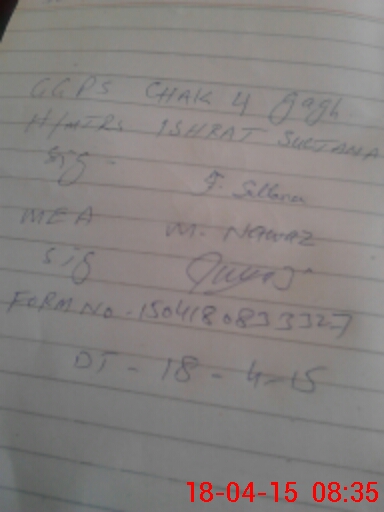 GGPS CHAK 4 Gagh
H/MTRS ISHRAT SULTANA
Sig -
MEA M. Nawaz
Sig
FORM No. 1504180833327
DT - 18 - 4-15
18-04-15 08:35